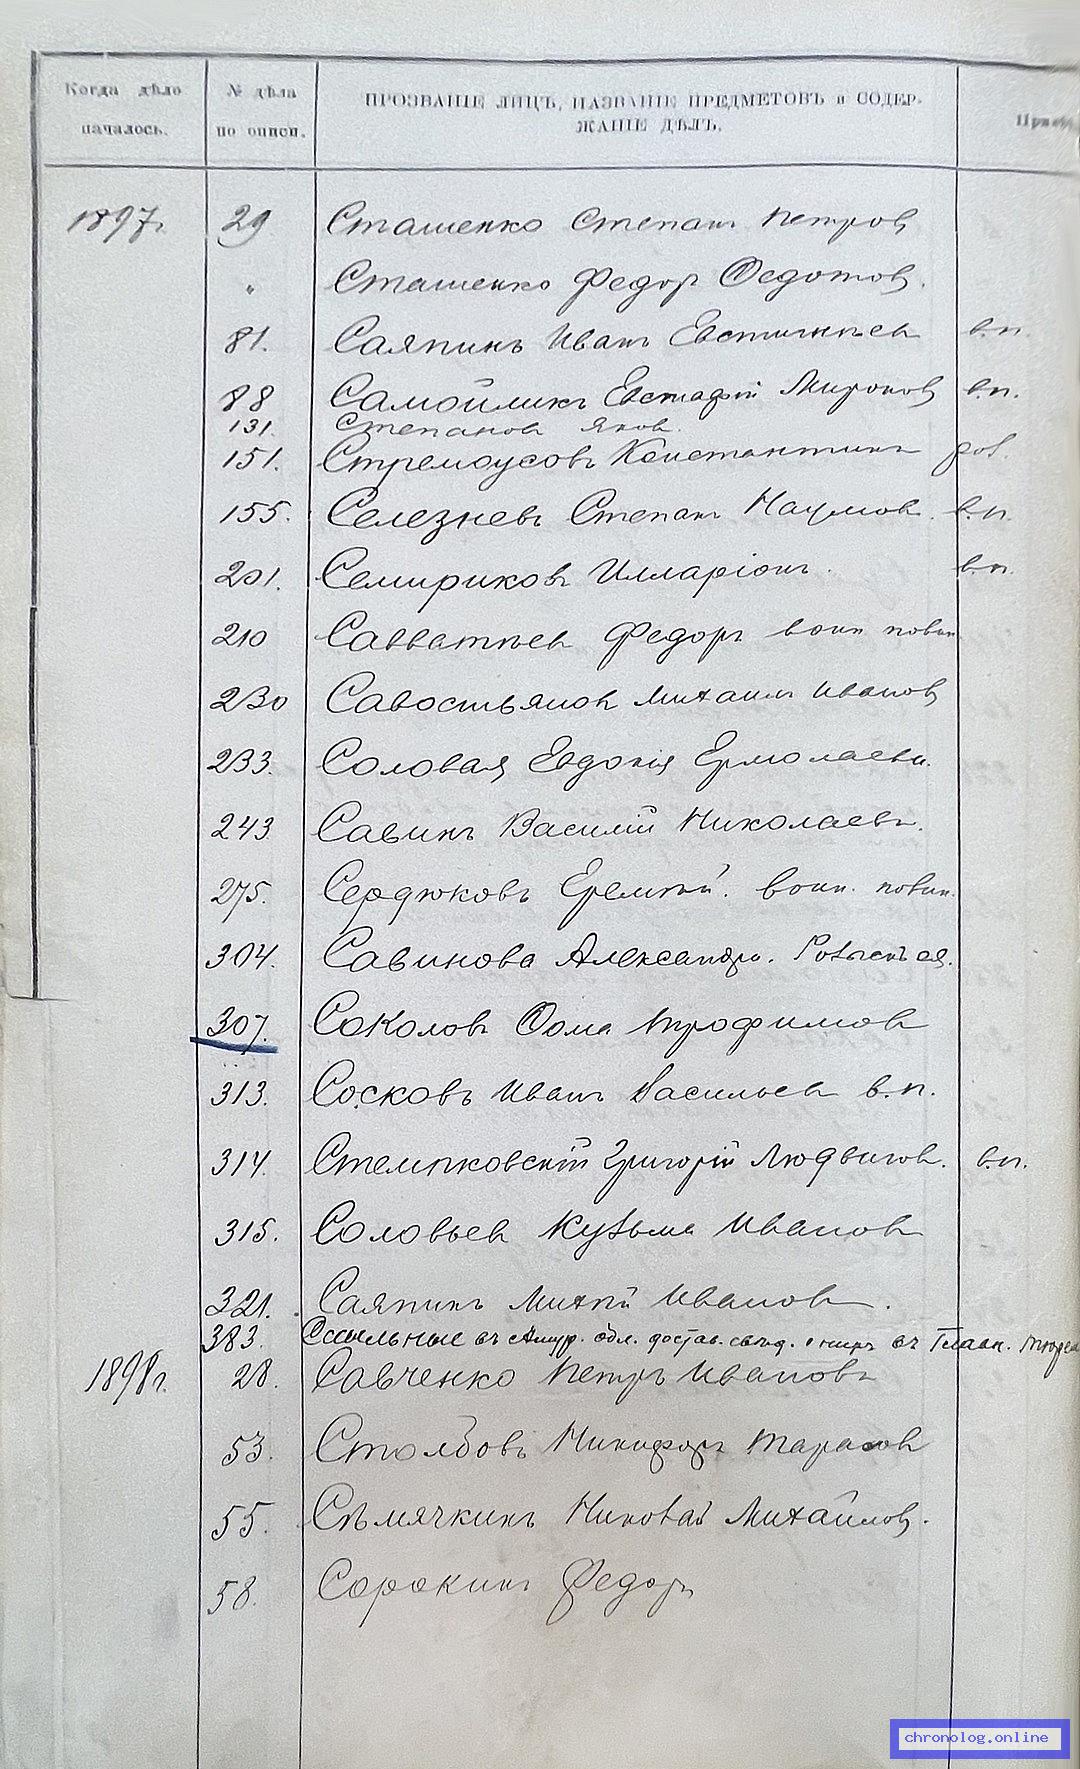 Когда дѣло началось.
№ дѣла по описи.
ПРОЗВАНІЕ ЛИЦЪ, НАЗВАНІЕ ПРЕДМЕТОВЪ и СОДЕР-
ЖАНІЕ ДѢЛЪ.
1897г. 29 Сташенко Степанъ Петров
" Сташенко Федор Ѳедотов.
81. Саяпинъ Иванъ Евстигнѣев в.п.
88 Самойликъ Евстафій Миронов в.п.
131. Степанов Яков.
151. Стремоусовъ Константинъ роз.
155. Селезневъ Степанъ Наумов. в.п.
201. Семириковъ Илларіонъ. в.п.
210 Савватѣев Федоръ воин повин
230 Савостьянов Михаилъ Иванов
233. Соловая Евдокія Ермолаевн.
243 Савинъ Василій Николаевъ.
275. Сердюковъ Еремѣй. воин. повин.
304. Савинова Александра. Розыскъ ея.
307. Соколовъ Ѳома Трофимов
313. Сосковъ Иванъ Васильев в.п.
314. Стемпковскій Григорій Людвигов. в.п.
315. Соловьев Кузьма Иванов
321. Саяпинъ Михѣй Иванов.
383. Ссыльные въ Амур. обл. достав. свѣд. о нихъ въ Главн. тюрем
1898г. 28. Савченко Петръ Ивановъ
53. Столбовъ Никифоръ Тарасов
55. Сѣмячкинъ Николай Михайлов.
58. Сорокинъ Федоръ
chronolog.online